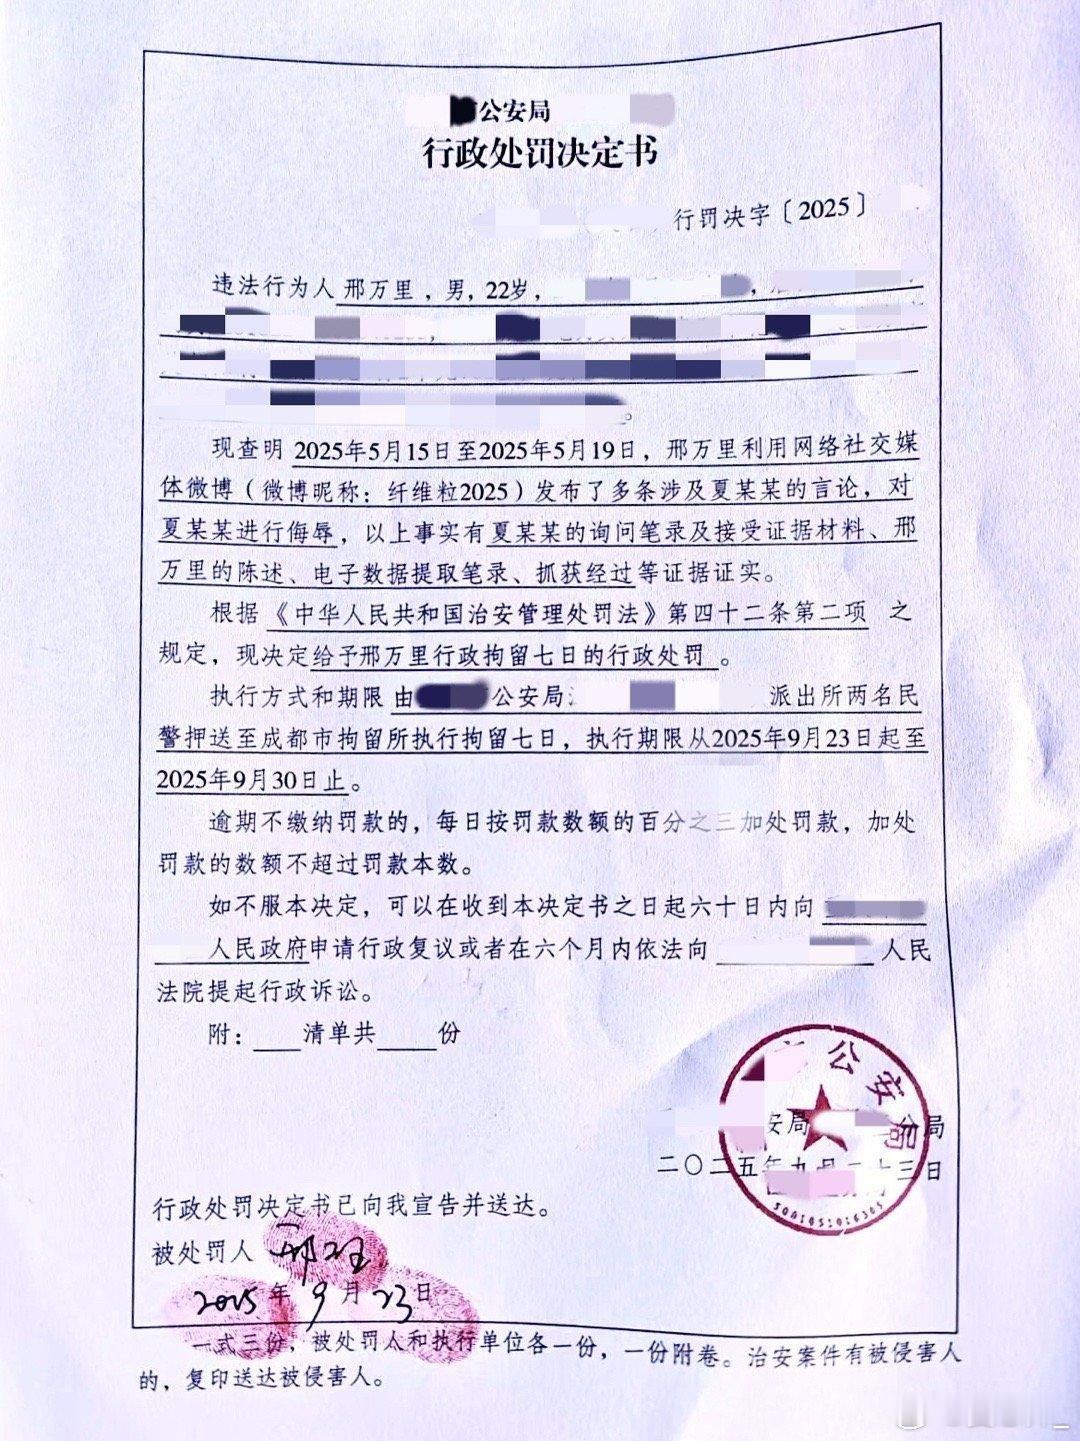 公安局
行政处罚决定书
行罚决字〔2025〕
违法行为人邢万里，男，22岁，
现查明 2025年5月15日至2025年5月19日，邢万里利用网络社交媒
体微博（微博昵称：纤维粒2025）发布了多条涉及夏某某的言论，对
夏某某进行侮辱，以上事实有夏某某的询问笔录及接受证据材料、邢
万里的陈述、电子数据提取笔录、抓获经过等证据证实。
根据《中华人民共和国治安管理处罚法》第四十二条第二项 之
规定，现决定给予邢万里行政拘留七日的行政处罚 。
执行方式和期限 由 公安局 派出所两名民
警押送至成都市拘留所执行拘留七日，执行期限从2025年9月23日起至
2025年9月30日止。
逾期不缴纳罚款的，每日按罚款数额的百分之三加处罚款，加处
罚款的数额不超过罚款本数。
如不服本决定，可以在收到本决定书之日起六十日内向
人民政府申请行政复议或者在六个月内依法向 人民
法院提起行政诉讼。
附： 清单共 份
公安局
安局 分局
二〇二五年九月二十三日
行政处罚决定书已向我宣告并送达。
被处罚人
2025年9月23日
一式三份，被处罚人和执行单位各一份，一份附卷。治安案件有被侵害人
的，复印送达被侵害人。